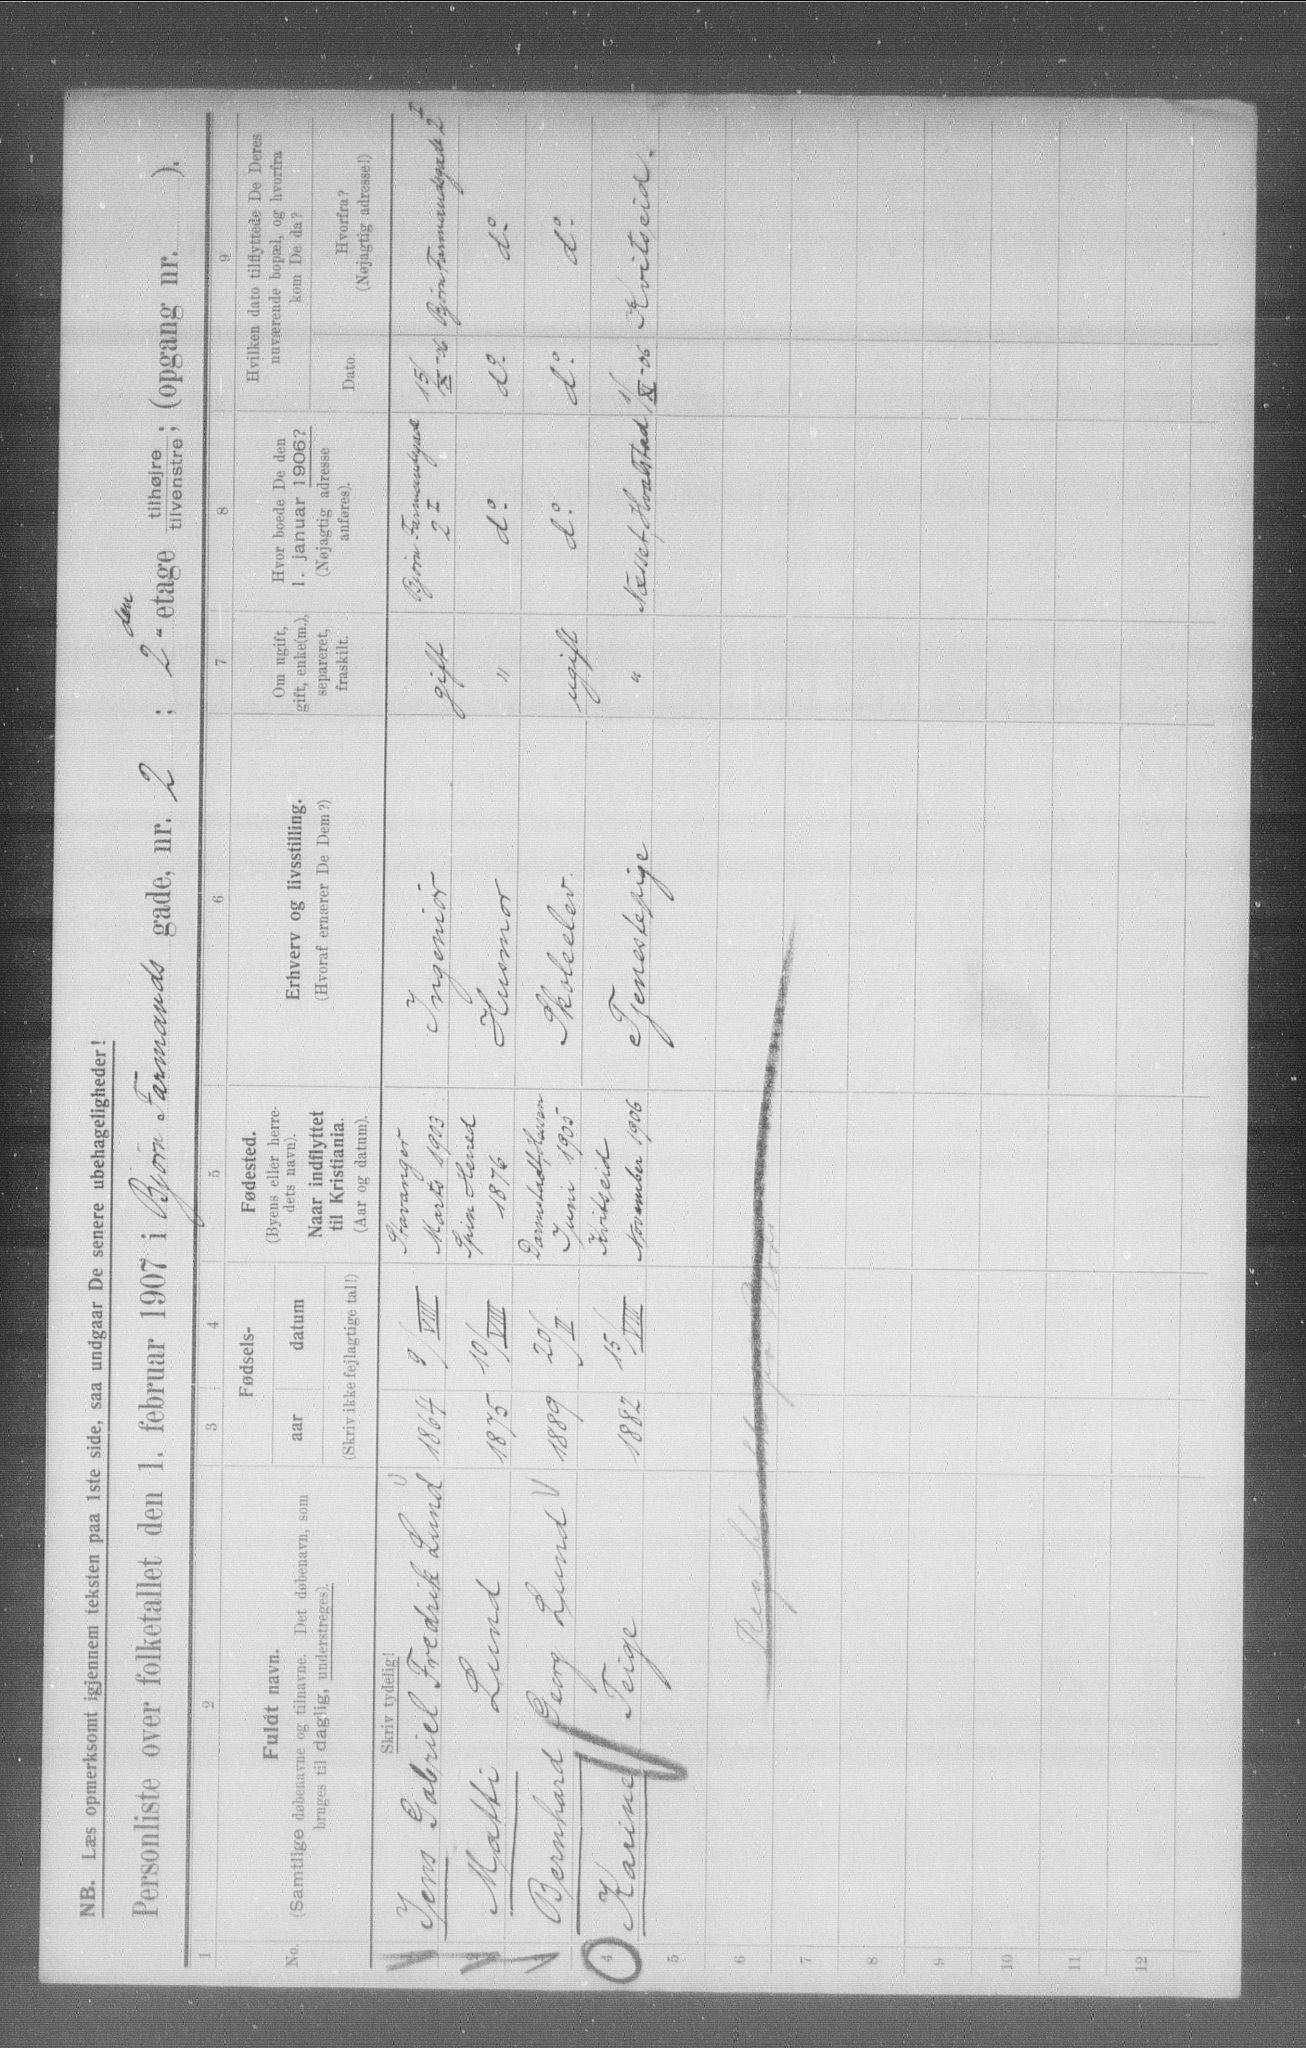 NB. Læs opmerksomt igjennem teksten paa 1ste side, saa undgaar De senere ubehageligheder!
Personliste over folketallet den 1. februar 1907 i Bjørn Farmands gade, nr. 2 ; 2den etage tilhøjre tilvenstre; (opgang nr. ).
1 2 3 4 5 6 7 8 9
No.
Fuldt navn.
(Samtlige døbenavne og tilnavne. Det døbenavn, som
bruges til daglig, understreges).
Fødsels-
aar datum
(Skriv ikke fejlagtige tal!)
Fødested.
(Byens eller herre-
dets navn).
Naar indflyttet
til Kristiania.
(Aar og datum).
Erhverv og livsstilling.
(Hvoraf ernærer De Dem?)
Om ugift,
gift, enke(m.),
separeret,
fraskilt.
Hvor boede De den
1. januar 1906?
(Nøjagtig adresse
anføres).
Hvilken dato tilflyttede De Deres
nuværende bopæl, og hvorfra
kom De da?
Dato.
Hvorfra?
(Nøjagtig adresse!)
Skriv tydelig!
Jens Gabriel Fredrik Lund 1864 9/VIII Stavanger Marts 1903 Ingeniør gift Bjørn Farmandsgade 2 I 15/IX-06 Bjørn Farmandsgade 2 I
2 Matti Lund 1875 10/VIII Herred 1876 Husmor " do. do. do.
Bernhard Georg Lund 1889 20/II Darmstadt Hessen Juni 1905 Skoleelev. ugift do. do. do.
4 Karine Teige 1882 15/VIII Kvitseid November 1906 Tjenestepige " Næsset, Hvalstad 1/XI-06 Kvitseid.
5
6
7
8
9
10
11
12